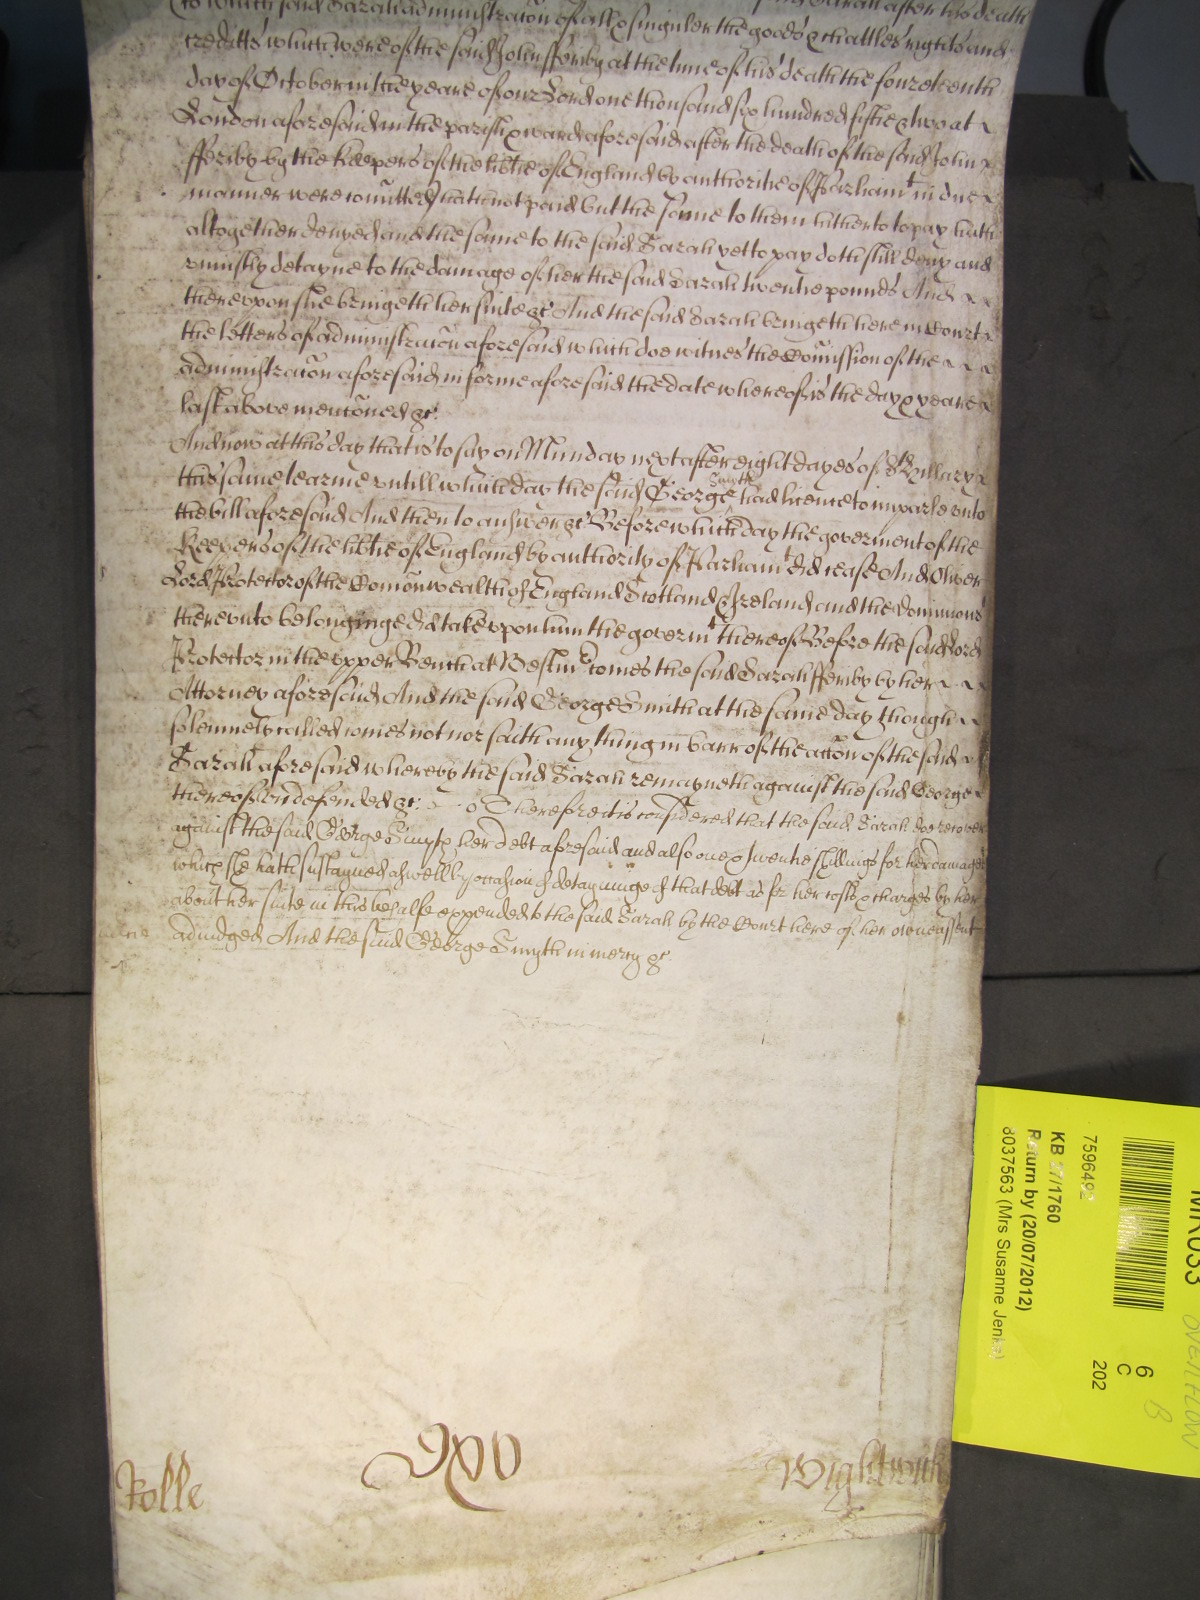 to which said Sarah administracōn of all & singuler the goods & chattles rights and
creditts which were of the said John fferiby at the time of his death the fourteenth
day of October in the yeare of our Lord one thousand six hundred fiftie & two at
London aforesaid in the parish & ward aforesaid after the death of the said John
fferiby by the Keepers of the libtie of England by authoritie of Parliamt in due
manner were comitted) hath not paid but the same to them hitherto to pay hath
altogether denyed and the same to the said Sarah yet to pay doth still deny and
uniustly detayne to the damage of her the said Sarah twentie pounds And
thereuppon she bringeth her suite &c And the said Sarah bringeth here in Court
the letters of administracōn aforesaid which doe witnes the Comission of the
administracōn aforesaid in forme aforesaid the date whereof is the day & yeare
last above mencōned &c.
And now at this day that is to say on Munday next after eight dayes of St Hillary
this same tearme untill which day the said George Smyth had licence to imparle unto
the bill aforesaid And then to answer &c Before which day the goverment of the
Keepers of the libtie of England by authority of Parliamt did cease And Oliver
Lord Protector of the Comonwealth of England Scotland & Ireland and the dominions
thereunto belonginge did take uppon him the governmt thereof Before the said Lord
Protector in the upper Bench at Westmr comes the said Sarah fferiby by her
Attorney aforesaid And the said George Smith at the same day though
solemnely called comes not nor saith any thing in barr of the accōn of the said
Sarah aforesaid whereby the said Sarah remayneth against the said George
thereof undefended &c. Therefore it is considered that the said Sarah doe recover
against the said George Smyth her debt aforesaid and also one & twentie shillings for her damages
which she hath sustayned aswell by occasion of detayninge of that debt as for her costs & charges by her
about her suite in this behalfe expended to the said Sarah by the Court here of her owne assent
adiudged And the said George Smyth in mercy &c.
Rolle
Wightwick
7596492
KB 27/1760
Return by (20/07/2012)
8037563 (Mrs Susanne Jenks)
6
C
202
MR033
OVERFLOW
B